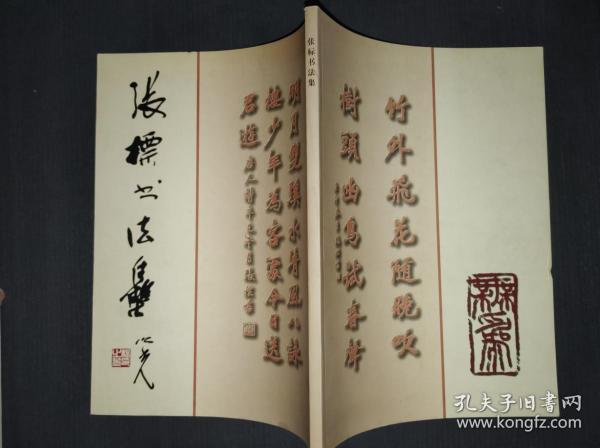 張標书法集
明月雙溪水清風八詠
樓少年為客處今日送
君遊
张标书法集
竹外飛花随晚吹
樹頭幽鳥試春聲
孔夫子旧书网
www.kongfz.com